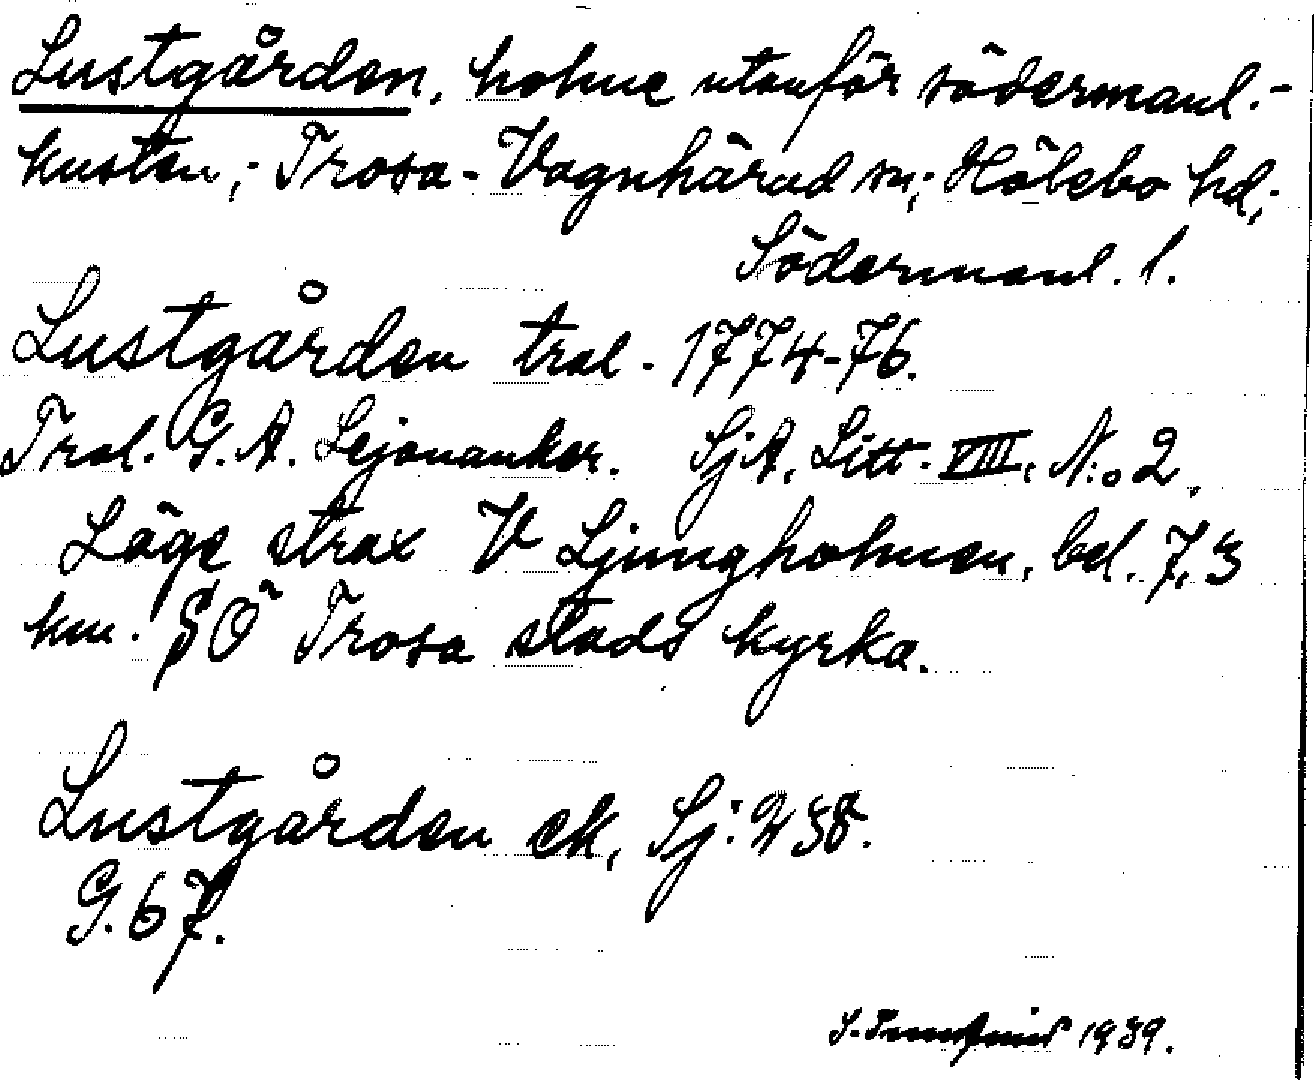 Lustgården, holme utanför södermanl.-
kusten,- Trosa-Vagnhärad sn; Hölebo hd,
Södermanl. l.
Lustgården tral. 1774-76.
Tral. G. A. Lejonanker. SjA, Litt. VIII, N:o 2.
Läge strax V Ljungholmen, bel. 7,3
km. SÖ Trosa stads kyrka.
Lustgården ek, Sj: 238.
G. 67.
1939.